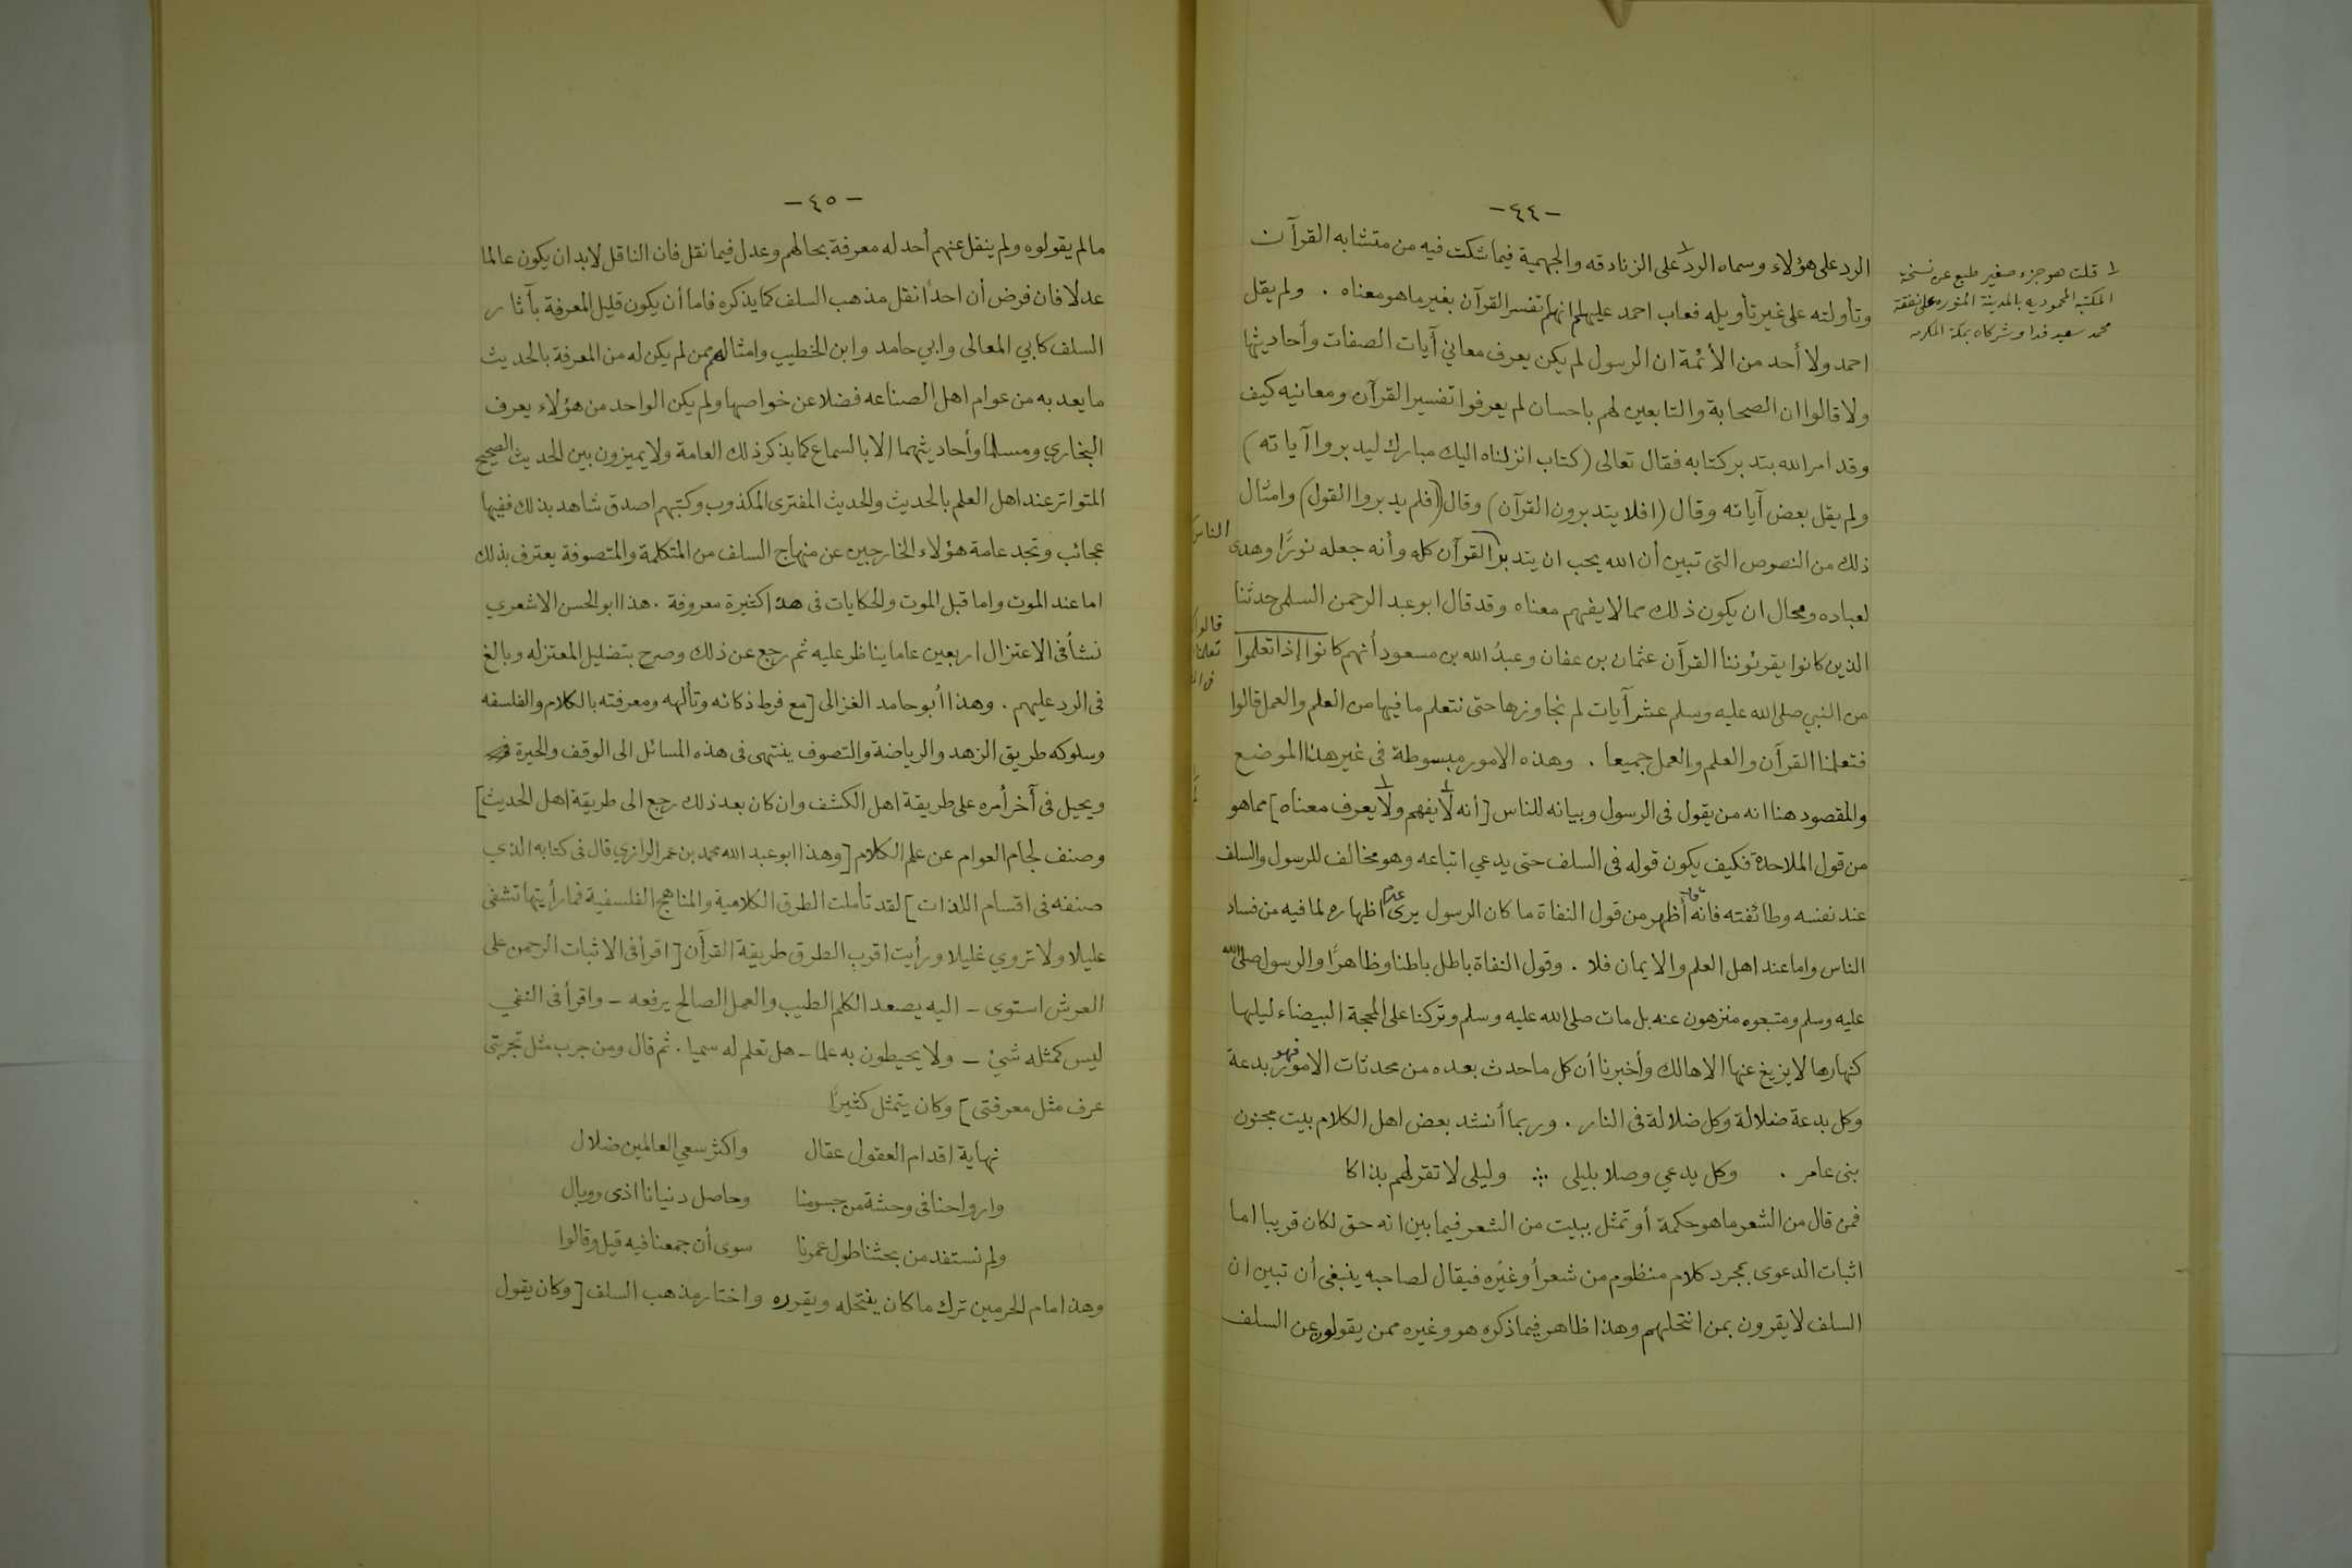 -٤٤-
الرد على هؤلاء وسماه الرد على الزنادقه والجهمية فيما شكت فيه من متشابه القرآن
وتأولته على غير تأويله فعاب احمد عليهم انهم تفسر القرآن بغير ما هو معناه . ولم يقل
احمد ولا أحد من الأئمة ان الرسول لم يكن يعرف معاني آيات الصفات وأحاديثها
ولا قالوا ان الصحابة والتابعين لهم باحسان لم يعرفوا تفسير القرآن ومعانيه كيف
وقد امر الله بتدبر كتابه فقال تعالى (كتاب انزلناه اليك مبارك ليدبروا آياته)
ولم يقل بعض آياته وقال (افلا يتدبرون القرآن) وقال (افلم يدبروا القول) وامثال
ذلك من النصوص التى تبين أن الله يحب ان يتدبر الناس القرآن كله وأنه جعله نورًا وهدى
لعباده ومحال ان يكون ذلك مما لا يفهم معناه وقد قال ابو عبد الرحمن السلمى حدثنا
الذين كانوا يقرئوننا القرآن عثمان بن عفان وعبدُ الله بن مسعود أنهم كانوا إذا تعلموا
من النبي صلى الله عليه وسلم عشر آيات لم نجاوزها حتى نتعلم ما فيها من العلم والعمل قالوا
فتعلمنا القرآن والعلم والعمل جميعا . وهذه الامور مبسوطة فى غير هذا الموضع
والمقصود هنا انه من يقول فى الرسول وبيانه للناس [أنه لا يفهم ولا يعرف معناه] مما هو
من قول الملاحدة فكيف يكون قوله فى السلف حتى يدعي اتباعه وهو مخالف للرسول والسلف
عند نفسه وطائفته فانه أظهر من قول النفاة ما كان الرسول يرى عدم اظهاره لما فيه من فساد
الناس واما عند اهل العلم والايمان فلا . وقول النفاة باطل باطنا وظاهرًا والرسول صلى الله
عليه وسلم ومتبعوه منزهون عنه بل مات صلى الله عليه وسلم وتركنا على المحجة البيضاء ليلها
كنهارها لا يزيغ عنها الا هالك وأخبرنا أن كل ما حدث بعده من محدثات الامور فهو بدعة
وكل بدعة ضلالة وكل ضلالة فى النار . وربما أنشد بعض اهل الكلام بيت مجنون
بنى عامر . وكل يدعي وصلا بليلى ∴ وليلى لا تقر لهم بذاكا
فمن قال من الشعر ما هو حكمة أو تمثل ببيت من الشعر فيما بين انه حق لكان قريبا اما
اثبات الدعوى بمجرد كلام منظوم من شعر أو غيره فيقال لصاحبه ينبغى أن تبين ان
السلف لا يقرون بمن انتحلهم وهذا ظاهر فيما ذكره هو وغيره ممن يقولون عن السلف
١ قلت هو جزء صغير طبع عن نسخة
المكتبة المحموديه بالمدينة المنوره على نفقة
محمد سعيد فدا وشركاه بمكة المكرمه
-٤٥-
ما لم يقولوه ولم ينقل عنهم أحد له معرفة بحالهم وعدل فيما نقل فان الناقل لابد ان يكون عالما
عدلا فان فرض أن احدًا نقل مذهب السلف كما يذكره فاما أن يكون قليل المعرفة بآثار
السلف كابي المعالى وابي حامد وابن الخطيب وامثالهم ممن لم يكن له من المعرفة بالحديث
ما يعد به من عوام اهل الصناعه فضلا عن خواصها ولم يكن الواحد من هؤلاء يعرف
البخاري ومسلما وأحاديثهما الا بالسماع كما يذكر ذلك العامة ولا يميزون بين الحديث الصحيح
المتواتر عند اهل العلم بالحديث والحديث المفترى المكذوب وكتبهم اصدق شاهد بذلك ففيها
عجائب وتجد عامة هؤلاء الخارجين عن منهاج السلف من المتكلمة والمتصوفة يعترف بذلك
اما عند الموت واما قبل الموت والحكايات فى هذا كثيرة معروفة . هذا ابو الحسن الاشعري
نشأ فى الاعتزال اربعين عاما يناظر عليه ثم رجع عن ذلك وصرح بتضليل المعتزله وبالغ
فى الرد عليهم . وهذا أبو حامد الغزالى [مع فرط ذكائه وتألهه ومعرفته بالكلام والفلسفه
وسلوكه طريق الزهد والرياضة والتصوف ينتهى فى هذه المسائل الى الوقف والحيرة
ويحيل فى آخر أمره على طريقة اهل الكشف وان كان بعد ذلك رجع الى طريقة اهل الحديث]
وصنف لجام العوام عن علم الكلام [وهذا ابو عبد الله محمد بن عمر الرازي قال فى كتابه الذي
صنفه فى اقسام اللذات] لقد تأملت الطرق الكلامية والمناهج الفلسفية فما رأيتها تشفى
عليلا ولا تروي غليلا ورأيت اقرب الطرق طريقة القرآن [اقرأ فى الاثبات الرحمن على
العرش استوى - اليه يصعد الكلم الطيب والعمل الصالح يرفعه - واقرأ فى النفي
ليس كمثله شيئ - ولا يحيطون به علما - هل تعلم له سميا . ثم قال ومن جرب مثل تجربتى
عرف مثل معرفتى] وكان يتمثل كثيرًا
نهاية اقدام العقول عقال واكثر سعي العالمين ضلال
وارواحنا فى وحشة من جسومنا وحاصل دنيانا اذى ووبال
ولم نستفد من بحثنا طول عمرنا سوى أن جمعنا فيه قيل وقالوا
وهذا امام الحرمين ترك ما كان ينتحله ويقرره واختار مذهب السلف [وكان يقول